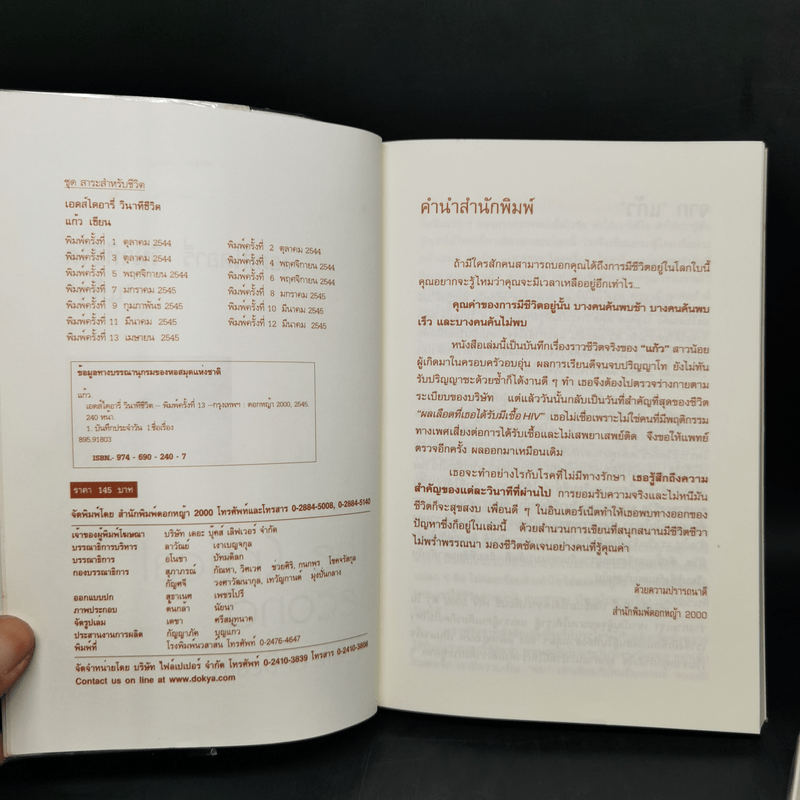 ชุด สาระสำหรับชีวิต
เอดส์ไดอารี่ วินาทีชีวิต
แก้ว เขียน
พิมพ์ครั้งที่ 1 ตุลาคม 2544
พิมพ์ครั้งที่ 2 ตุลาคม 2544
พิมพ์ครั้งที่ 3 ตุลาคม 2544
พิมพ์ครั้งที่ 4 พฤศจิกายน 2544
พิมพ์ครั้งที่ 5 พฤศจิกายน 2544
พิมพ์ครั้งที่ 6 พฤศจิกายน 2544
พิมพ์ครั้งที่ 7 มกราคม 2545
พิมพ์ครั้งที่ 8 มกราคม 2545
พิมพ์ครั้งที่ 9 กุมภาพันธ์ 2545
พิมพ์ครั้งที่ 10 มีนาคม 2545
พิมพ์ครั้งที่ 11 มีนาคม 2545
พิมพ์ครั้งที่ 12 มีนาคม 2545
พิมพ์ครั้งที่ 13 เมษายน 2545
ข้อมูลทางบรรณานุกรมของหอสมุดแห่งชาติ
แก้ว
เอดส์ไดอารี่ วินาทีชีวิต.-- พิมพ์ครั้งที่ 13.--กรุงเทพฯ : ดอกหญ้า 2000, 2545.
240 หน้า.
1. บันทึกประจำวัน I.ชื่อเรื่อง
895.91803
ISBN.- 974 - 690 - 240 - 7
ราคา 145 บาท
จัดพิมพ์โดย สำนักพิมพ์ดอกหญ้า 2000 โทรศัพท์และโทรสาร 0-2884-5008, 0-2884-5140
เจ้าของผู้พิมพ์โฆษณา บริษัท เดอะ บุ๊คส์ เลิฟเวอร์ จำกัด
บรรณาธิการบริหาร ลาวัณย์ เงาเบญจกุล
บรรณาธิการ อโนชา ปัทมดิลก
กองบรรณาธิการ สุภาภรณ์ กัณหา, วิศเวศ ชวยศิริ, กนกพร โชคจรัสกุล
กัญคธี วงศาวัฒนากุล, เทวัญกานต์ มุ่งปั่นกลาง
ออกแบบปก สุธาเนศ เพชรโปรี
ภาพประกอบ ต้นกล้า นัยนา
จัดรูปเล่ม เดชา ศรีสมุทนาค
ประสานงานการผลิต กัญญาภัค บุญแก้ว
พิมพ์ที่ โรงพิมพ์นวสาส์น โทรศัพท์ 0-2476-4647
จัดจำหน่ายโดย บริษัท ไฟล์เปเปอร์ จำกัด โทรศัพท์ 0-2410-3839 โทรสาร 0-2410-3808
Contact us on line at www.dokya.com
คำนำสำนักพิมพ์
ถ้ามีใครสักคนสามารถบอกคุณได้ถึงการมีชีวิตอยู่ในโลกใบนี้
คุณอยากจะรู้ไหมว่าคุณจะมีเวลาเหลืออยู่อีกเท่าไร...
คุณค่าของการมีชีวิตอยู่นั้น บางคนค้นพบช้า บางคนค้นพบ
เร็ว และบางคนค้นไม่พบ
หนังสือเล่มนี้เป็นบันทึกเรื่องราวชีวิตจริงของ "แก้ว" สาวน้อย
ผู้เกิดมาในครอบครัวอบอุ่น ผลการเรียนดีจนจบปริญญาโท ยังไม่ทัน
รับปริญญาซะด้วยซ้ำก็ได้งานดี ๆ ทำ เธอจึงต้องไปตรวจร่างกายตาม
ระเบียบของบริษัท แต่แล้ววันนั้นกลับเป็นวันที่สำคัญที่สุดของชีวิต
"ผลเลือดที่เธอได้รับมีเชื้อ HIV" เธอไม่เชื่อเพราะไม่ใช่คนที่มีพฤติกรรม
ทางเพศเสี่ยงต่อการได้รับเชื้อและไม่เสพยาเสพติด จึงขอให้แพทย์
ตรวจอีกครั้ง ผลออกมาเหมือนเดิม
เธอจะทำอย่างไรกับโรคที่ไม่มีทางรักษา เธอรู้สึกถึงความ
สำคัญของแต่ละวินาทีที่ผ่านไป การยอมรับความจริงและไม่หนีมัน
ชีวิตก็จะสุขสงบ เพื่อนดี ๆ ในอินเตอร์เน็ตทำให้เธอพบทางออกของ
ปัญหาซึ่งก็อยู่ในเล่มนี้ ด้วยสำนวนการเขียนที่สนุกสนานมีชีวิตชีวา
ไม่พร่ำพรรณนา มองชีวิตชัดเจนอย่างคนที่รู้คุณค่า
ด้วยความปรารถนาดี
สำนักพิมพ์ดอกหญ้า 2000